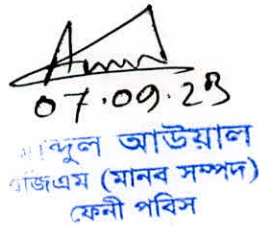 07.09.23
আব্দুল আউয়াল
এজিএম (মানব সম্পদ)
ফেনী পবিস